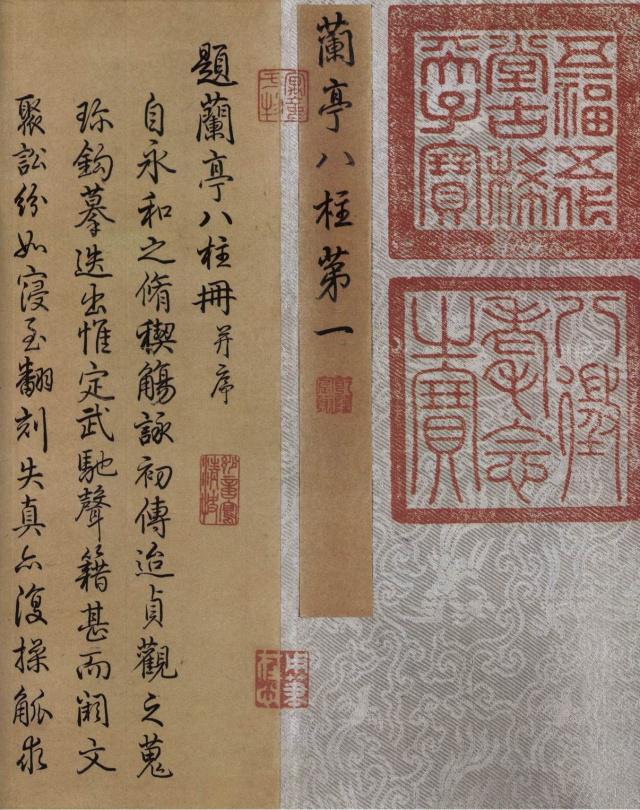 五福五代
堂古稀
天子寶
八徵
耄念
之寶
蘭亭八柱第一
題蘭亭八柱冊 并序
自永和之脩禊觴詠初傳迨貞觀之蒐
珎鉤摹迭出惟定武馳聲籍甚而闕文
聚訟紛如寖至翻刻失真亦復操觚求